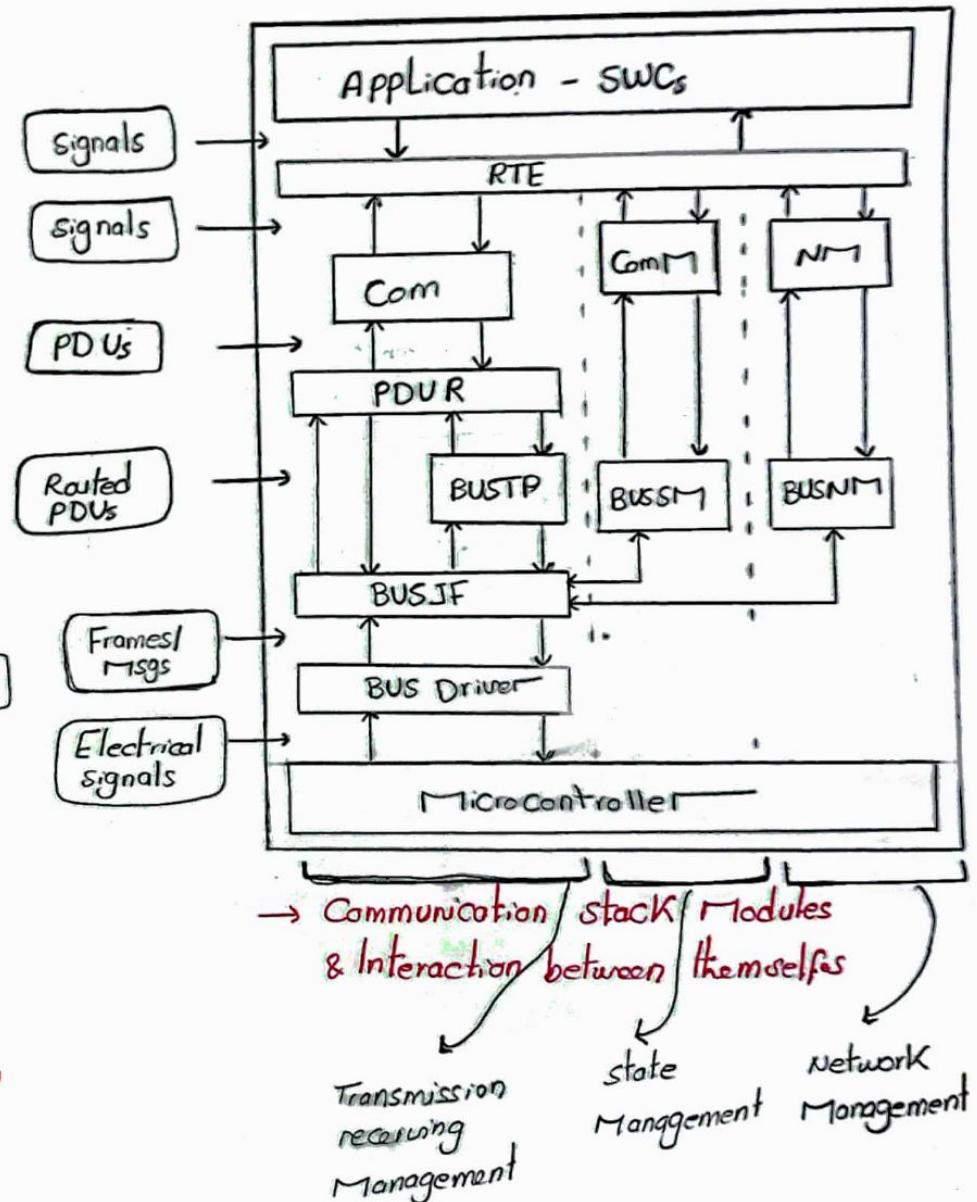 Application - SWCs
Signals
RTE
Signals
Com
ComM
NM
PDUs
PDUR
Routed
PDUs
BUSTP
BUSSM
BUSNM
BUSIF
Frames/
Msgs
BUS Driver
Electrical
signals
Microcontroller
→ Communication stack Modules
& Interaction between themselfes
Transmission
receiving
Management
state
Management
Network
Management